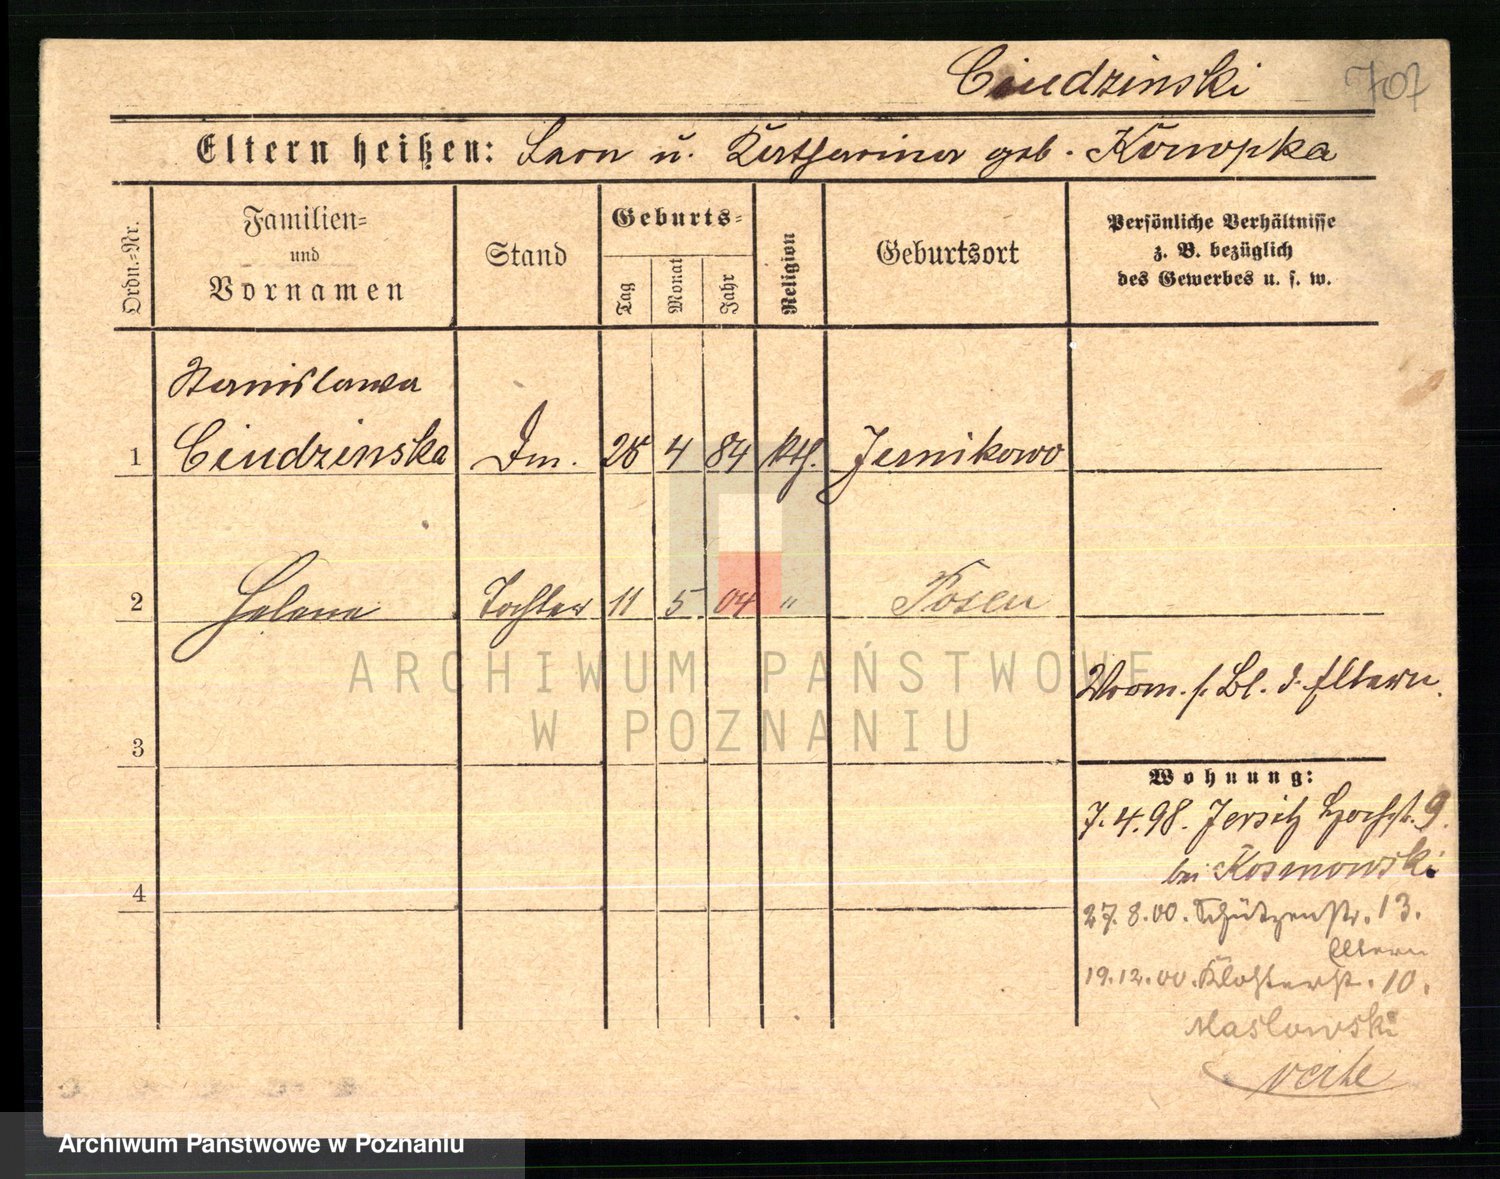 Ciudzinski 707
Eltern heißen: Leon u. Katharina geb. Konopka
Ordn.-Nr.
Familien-
und
Vornamen
Stand
Geburts-
Tag
Monat
Jahr
Religion
Geburtsort
Persönliche Verhältnisse
z. B. bezüglich
des Gewerbes u. s. w.
Stanislawa
1 Ciudzinska Dm. 25 4 84 kth. Jernikowo
2 Helene Tochter 11 5 04 " Posen
Vorm. s. Bl. d. Eltern.
3
Wohnung:
7.4.98. Jersitz Hochstr. 9.
bei Kosmowski
4
27.8.00. Schützenstr. 13.
Eltern
19.12.00. Klosterstr. 10.
Maslowski
verte
ARCHIWUM PAŃSTWOWE
W POZNANIU
Archiwum Państwowe w Poznaniu